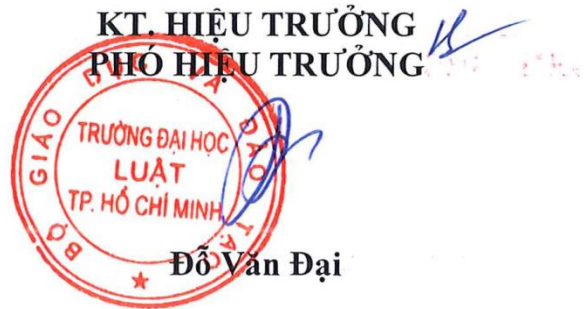 KT. HIỆU TRƯỞNG
PHÓ HIỆU TRƯỞNG
BỘ GIÁO DỤC VÀ ĐÀO TẠO
TRƯỜNG ĐẠI HỌC
LUẬT
TP. HỒ CHÍ MINH
Đỗ Văn Đại